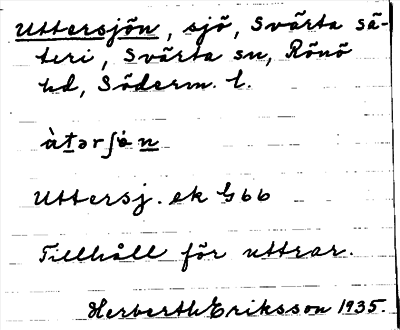 Uttersjön, sjö, Svärta sä-
teri, Svärta sn, Rönö
hd, Söderm. l.
ùtərʃö̀n
Uttersj. ek G 66
Tillhåll för uttrar.
Herberth Eriksson 1935.